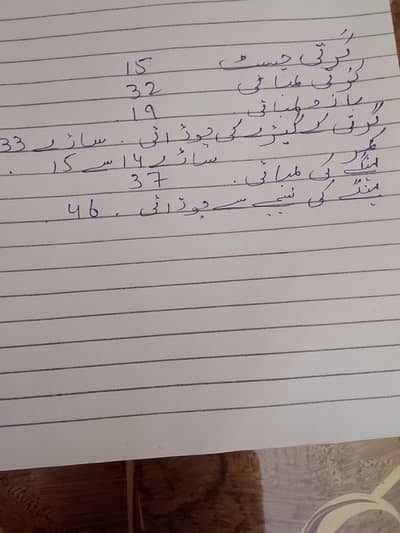 کُرتی چیسٹ 15
کُرتی لمبائی 32
بازو لمبائی 19
کُرتی کے گھیر کی چوڑائی . ساڑے 33
کمر ساڑے 14 سے 15 .
لہنگے کی لمبائی . 37
لہنگے کی نیچے سے چوڑائی . 46 .